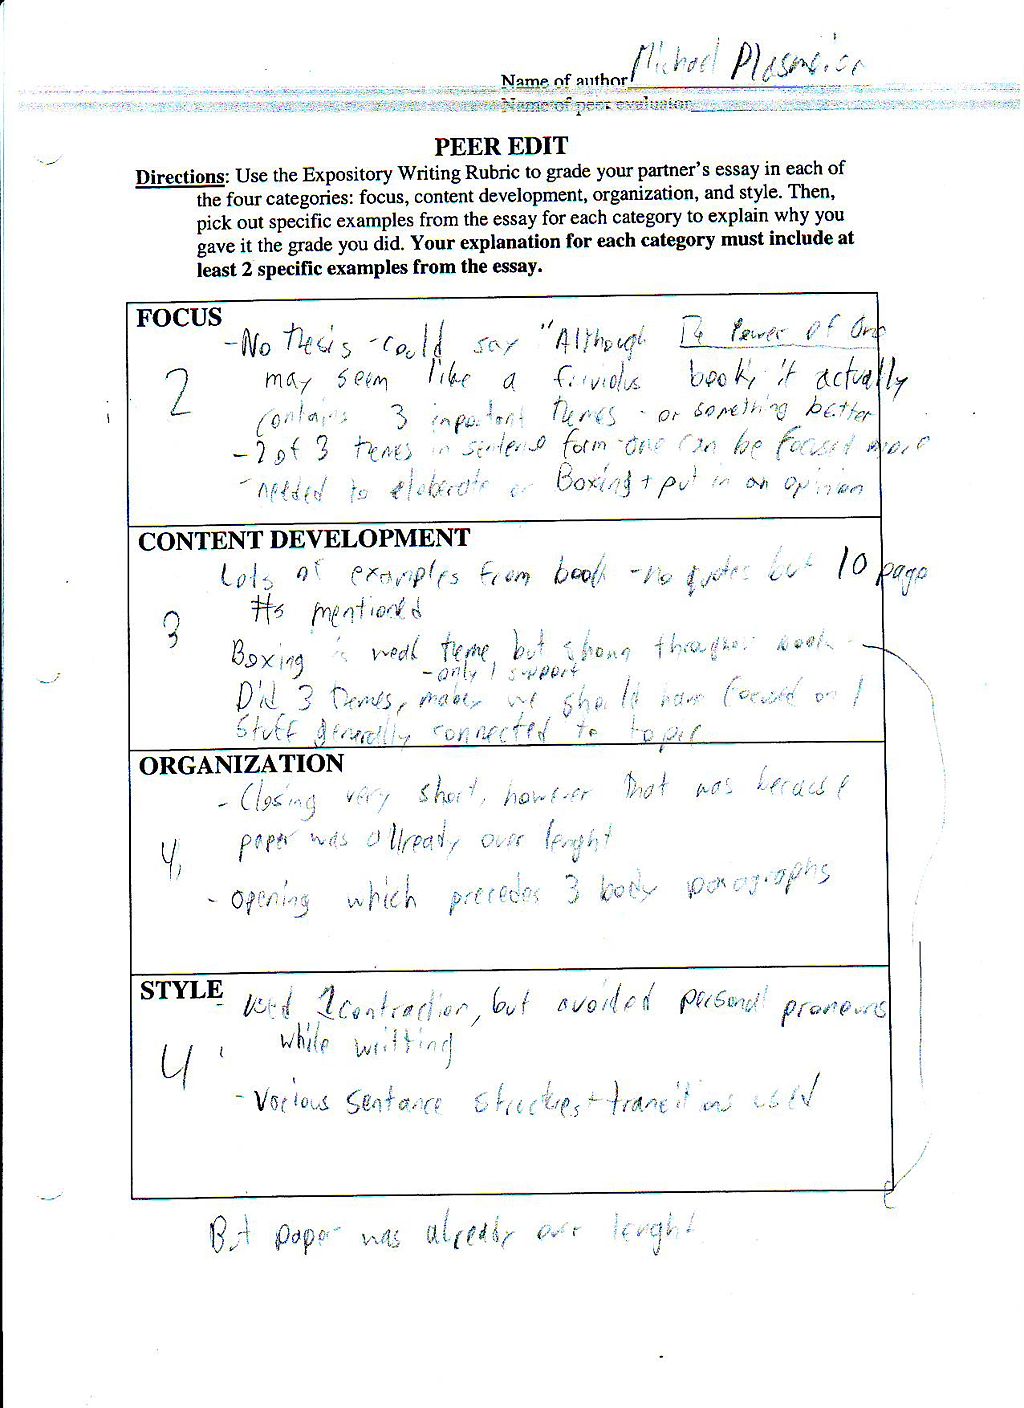 Name of author Michael Plasmeier
Name of peer evaluator
PEER EDIT
Directions: Use the Expository Writing Rubric to grade your partner's essay in each of
the four categories: focus, content development, organization, and style. Then,
pick out specific examples from the essay for each category to explain why you
gave it the grade you did. Your explanation for each category must include at
least 2 specific examples from the essay.
FOCUS
2
- No thesis - could say "Although The Power of One
may seem like a book, it actually
contains 3 important themes - or something better
- 2 of 3 themes in sentence form - one can be focused more
- needed to elaborate on Boxing + put in an opinion
CONTENT DEVELOPMENT
3
Lots of examples from book - no quotes but 10 page
#s mentioned
Boxing is weak theme, but strong throughout book
- only 1 support
Did 3 themes, maybe we should have focused on 1
Stuff generally connected to topic
ORGANIZATION
4
- Closing very short, however that was because
paper was allready over lenght
- opening which precedes 3 body paragraphs
STYLE
4
- used 1 contraction, but avoided personal pronouns
while writting
- Various sentance structures + transitions used
But paper was already over lenght